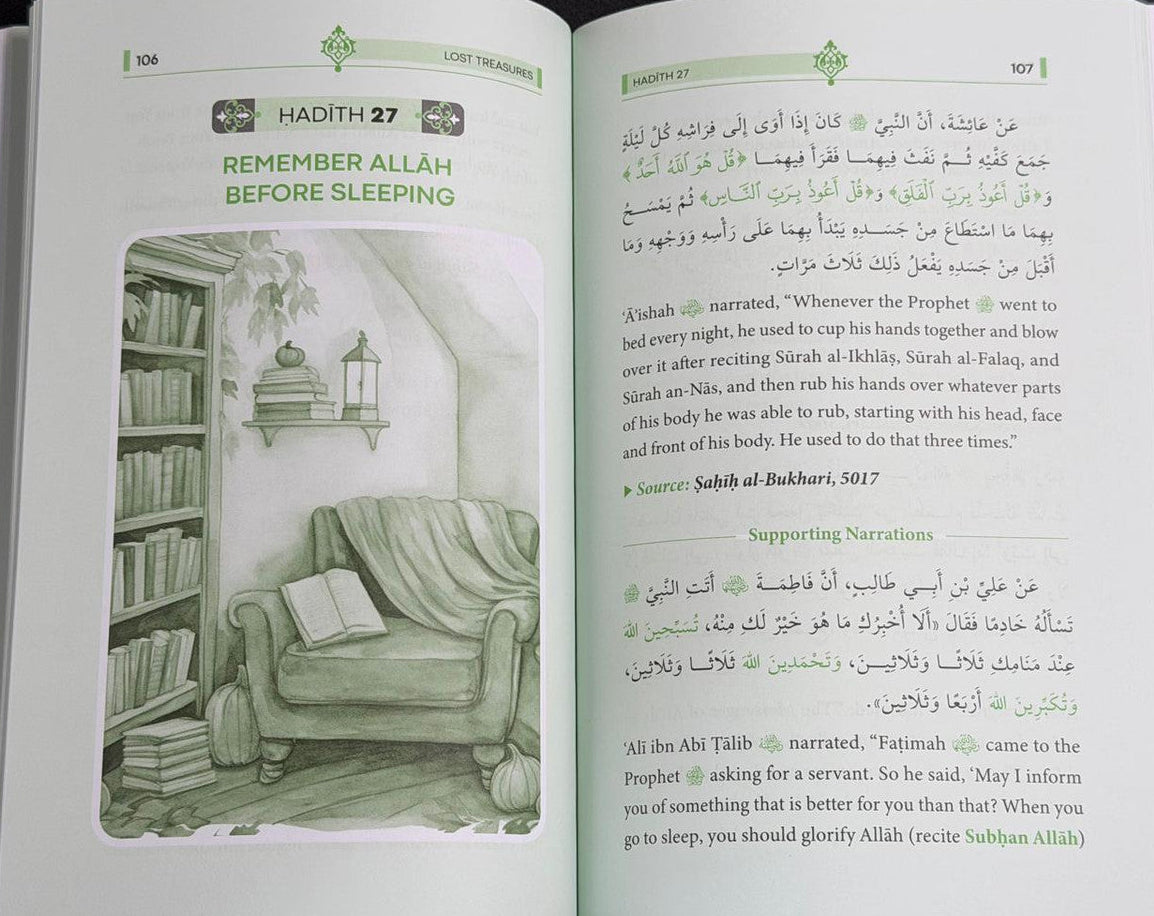 106
LOST TREASURES
ḤADĪTH 27
REMEMBER ALLĀH
BEFORE SLEEPING
ḤADĪTH 27
107
عَنْ عَائِشَةَ، أَنَّ النَّبِيَّ ﷺ كَانَ إِذَا أَوَى إِلَى فِرَاشِهِ كُلَّ لَيْلَةٍ
جَمَعَ كَفَّيْهِ ثُمَّ نَفَثَ فِيهِمَا فَقَرَأَ فِيهِمَا ﴿قُلْ هُوَ ٱللَّهُ أَحَدٌ﴾
وَ﴿قُلْ أَعُوذُ بِرَبِّ ٱلْفَلَقِ﴾ وَ﴿قُلْ أَعُوذُ بِرَبِّ ٱلنَّاسِ﴾ ثُمَّ يَمْسَحُ
بِهِمَا مَا اسْتَطَاعَ مِنْ جَسَدِهِ يَبْدَأُ بِهِمَا عَلَى رَأْسِهِ وَوَجْهِهِ وَمَا
أَقْبَلَ مِنْ جَسَدِهِ يَفْعَلُ ذَلِكَ ثَلَاثَ مَرَّاتٍ.
‘Ā’ishah narrated, “Whenever the Prophet ﷺ went to
bed every night, he used to cup his hands together and blow
over it after reciting Sūrah al-Ikhlāṣ, Sūrah al-Falaq, and
Sūrah an-Nās, and then rub his hands over whatever parts
of his body he was able to rub, starting with his head, face
and front of his body. He used to do that three times.”
Source: Ṣaḥīḥ al-Bukhari, 5017
Supporting Narrations
عَنْ عَلِيِّ بْنِ أَبِي طَالِبٍ، أَنَّ فَاطِمَةَ أَتَتِ النَّبِيَّ ﷺ
تَسْأَلُهُ خَادِمًا فَقَالَ «أَلَا أُخْبِرُكِ مَا هُوَ خَيْرٌ لَكِ مِنْهُ، تُسَبِّحِينَ اللهَ
عِنْدَ مَنَامِكِ ثَلَاثًا وَثَلَاثِينَ، وَتَحْمَدِينَ اللهَ ثَلَاثًا وَثَلَاثِينَ،
وَتُكَبِّرِينَ اللهَ أَرْبَعًا وَثَلَاثِينَ».
‘Alī ibn Abī Ṭālib narrated, “Faṭimah came to the
Prophet ﷺ asking for a servant. So he said, ‘May I inform
you of something that is better for you than that? When you
go to sleep, you should glorify Allāh (recite Subḥan Allāh)